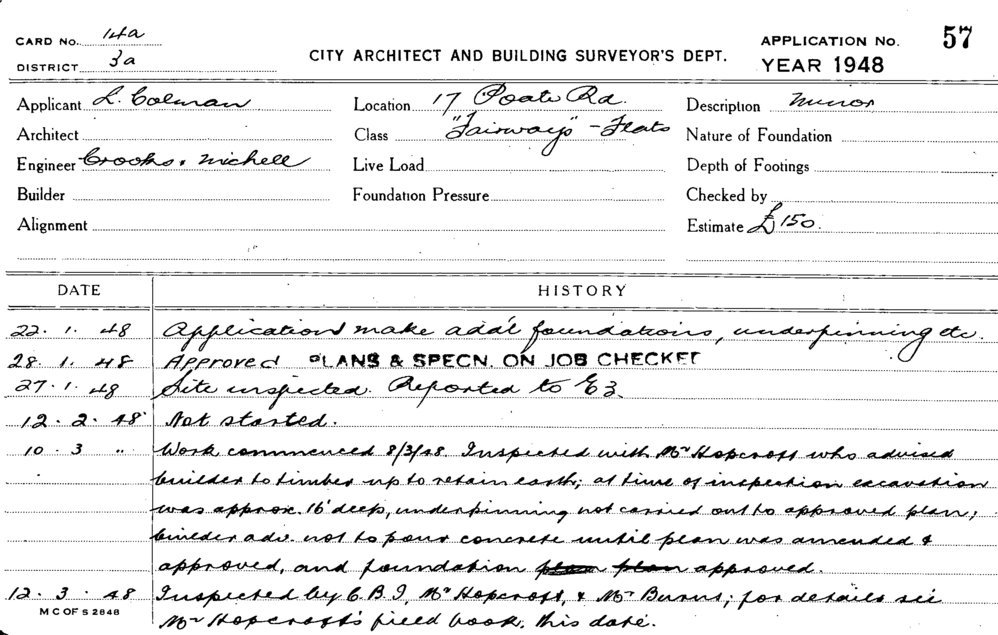 CARD No. 14a
DISTRICT 3a
CITY ARCHITECT AND BUILDING SURVEYOR'S DEPT.
APPLICATION No. 57
YEAR 1948
Applicant L. Colman
Location 17 Poate Rd.
Description Minor
Architect
Class "Fairways" - Flats
Nature of Foundation
Engineer Crooks & Michell
Live Load
Depth of Footings
Builder
Foundation Pressure
Checked by
Alignment
Estimate £150.
DATE HISTORY
22. 1. 48 Application make add'l foundations, underpinning etc.
28. 1. 48 Approved PLANS & SPECN. ON JOB CHECKED
27. 1. 48 Site inspected. Reported to E3.
12. 2. 48 Not started.
10. 3 " Work commenced 8/3/48. Inspected with Mr Hopcroft who advised
builder to timber up to retain earth; at time of inspection excavation
was approx. 16' deep, underpinning not carried out to approved plan;
builder adv. not to pour concrete until plan was amended &
approved, and foundation approved.
12. 3. 48 Inspected by C.B.I, Mr Hopcroft, & Mr Burns; for details see
M C OF S 2848
Mr Hopcroft's field book, this date.